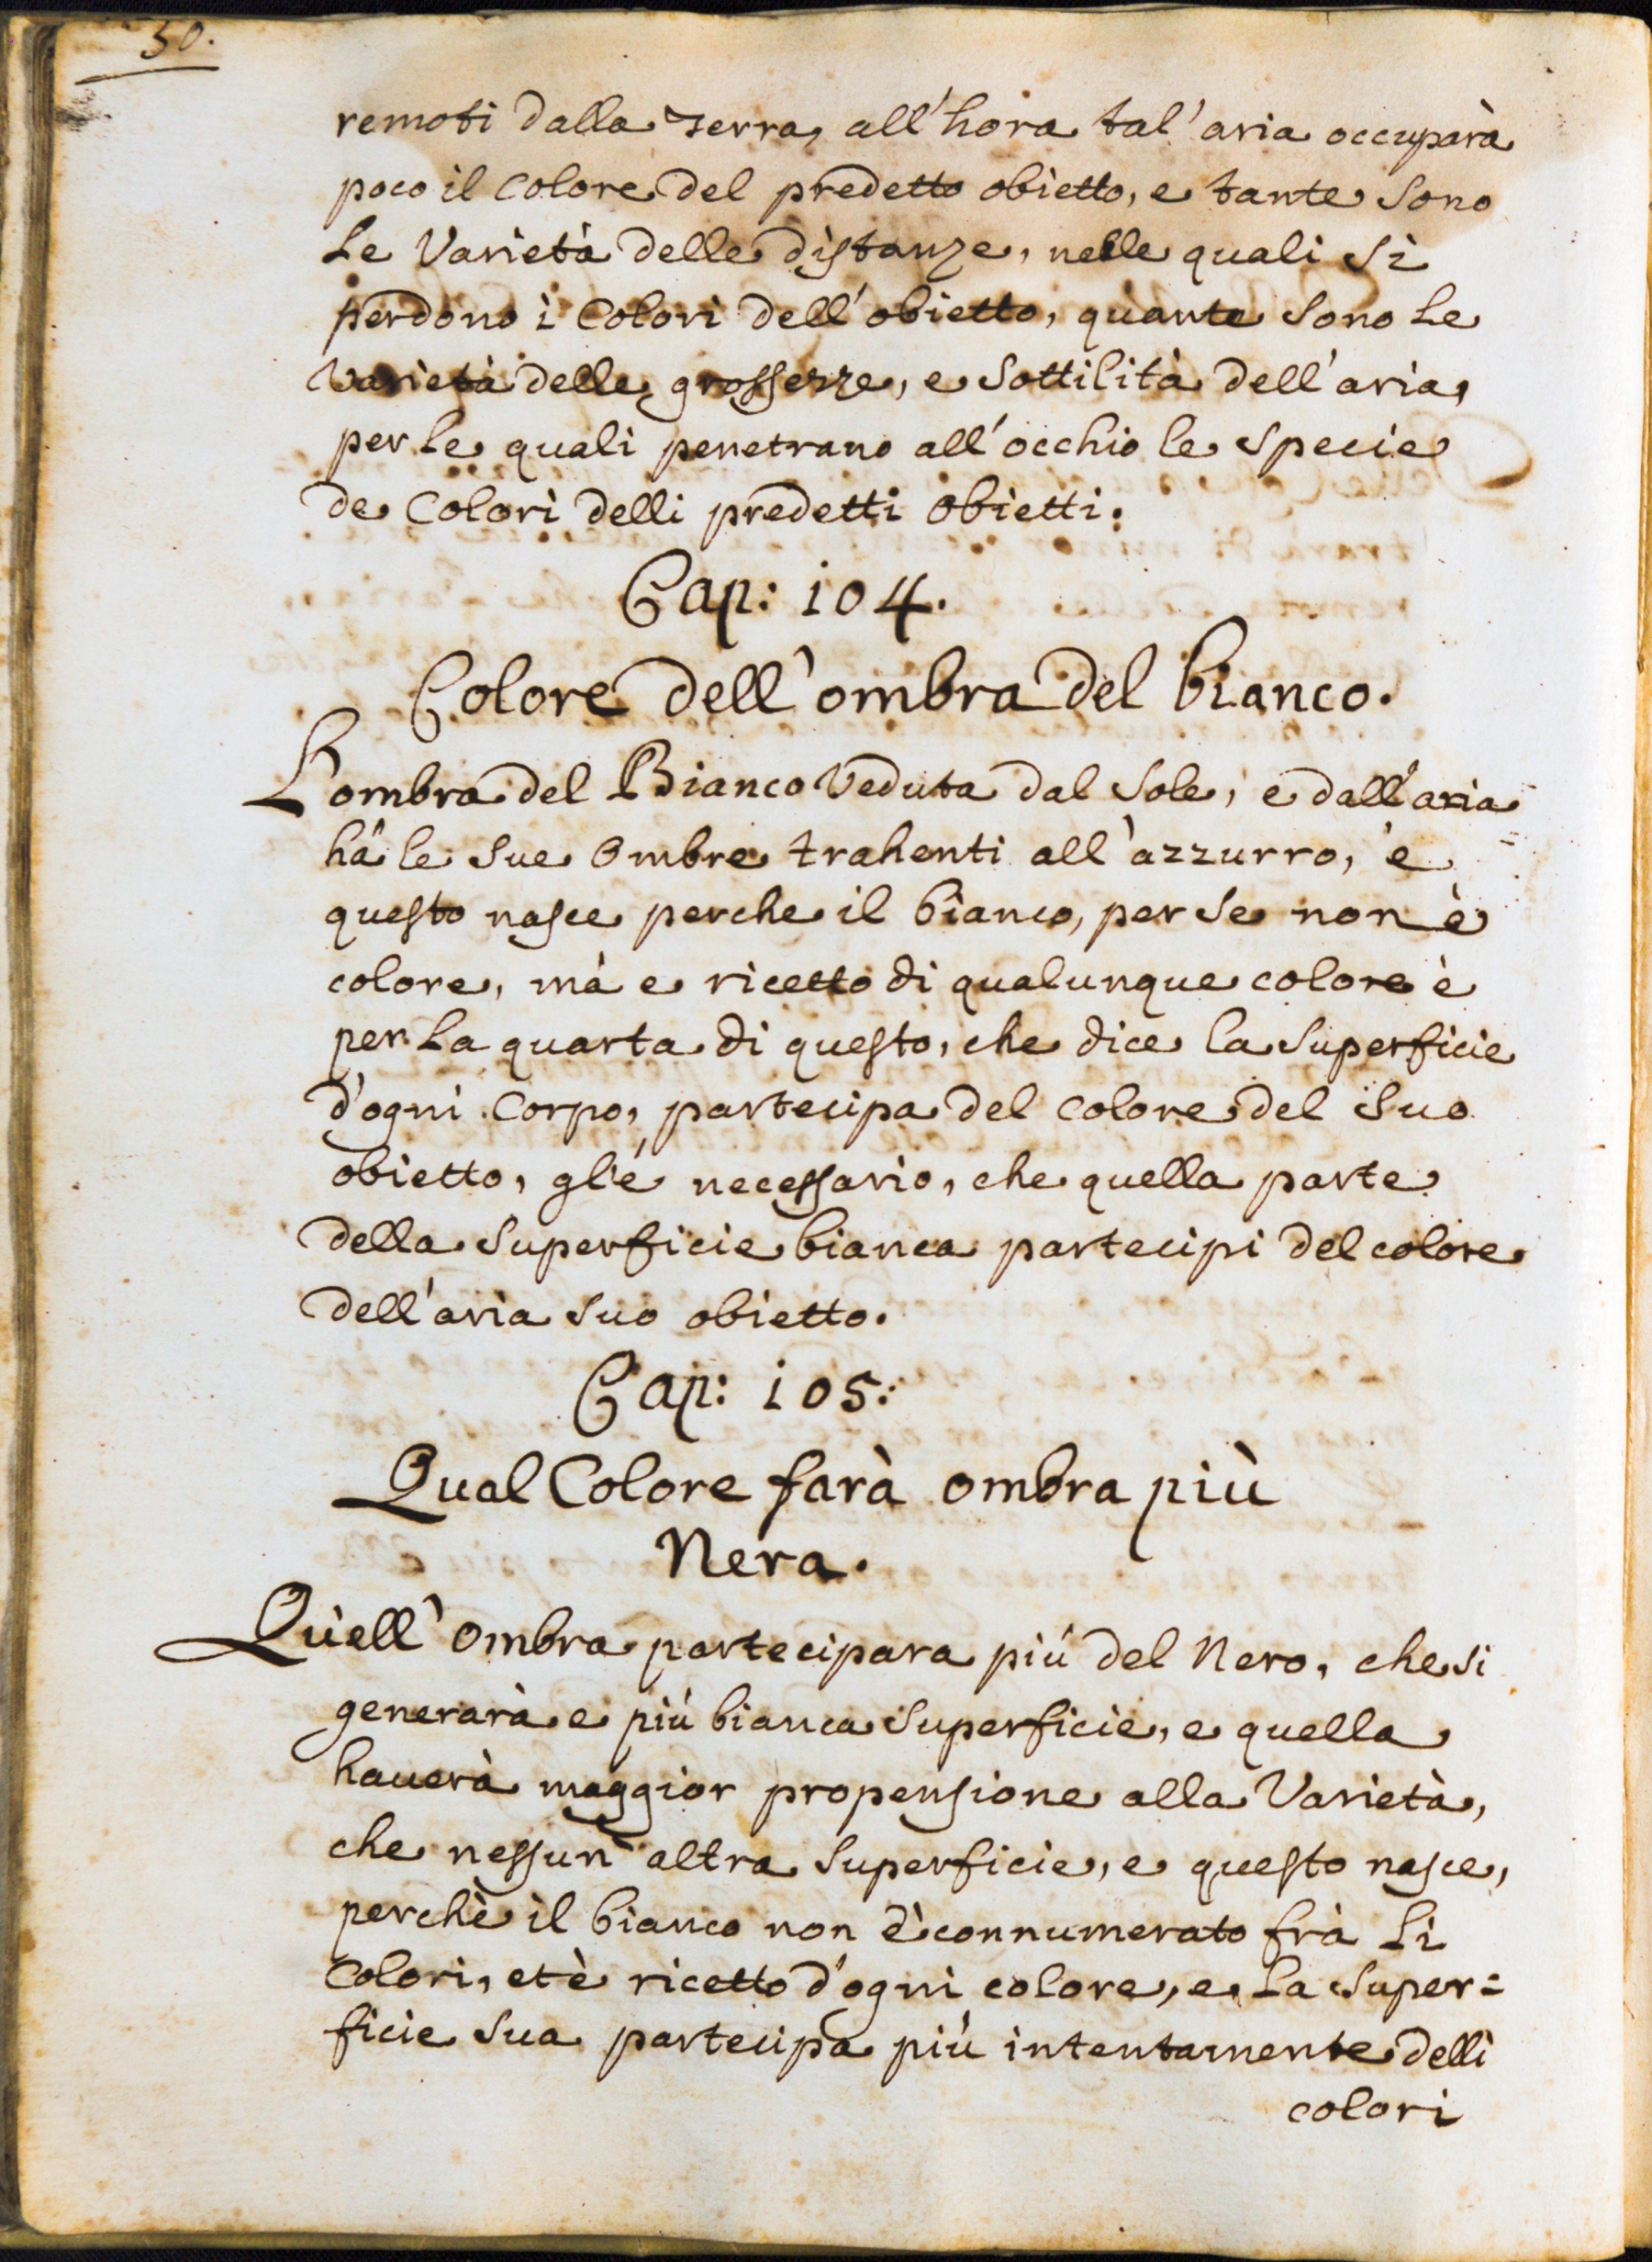 50.
remoti dalla terra, all'hora tal'aria occuparà
poco il colore del predetto obietto, e tante sono
le Varietà delle distanze, nelle quali si
perdono i Colori dell'obietto, quante sono le
Varietà delle grossezze, e sottilità dell'aria,
per le quali penetrano all'occhio le specie
de Colori delli predetti obietti.
Cap: 104.
Colore dell'ombra del bianco.
L'ombra del Bianco Veduta dal sole, e dall'aria
hà le sue ombre trahenti all'azzurro, e
questo nasce perche il bianco, per se non è
colore, mà e ricetto di qualunque colore è
per la quarta di questo, che dice la superficie
d'ogni Corpo, partecipa del colore del suo
obietto, gl'è necessario, che quella parte
della superficie bianca partecipi del colore
dell'aria suo obietto.
Cap: 105:
Qual Colore farà ombra più
Nera.
Quell'ombra partecipara più del Nero, che si
generarà e più bianca superficie, e quella
hauerà maggior propensione alla Varietà,
che nessun'altra superficie, e questo nasce,
perchè il bianco non è connumerato frà li
Colori, et è ricetto d'ogni colore, e la super=
ficie sua partecipa più intentamente delli
colori